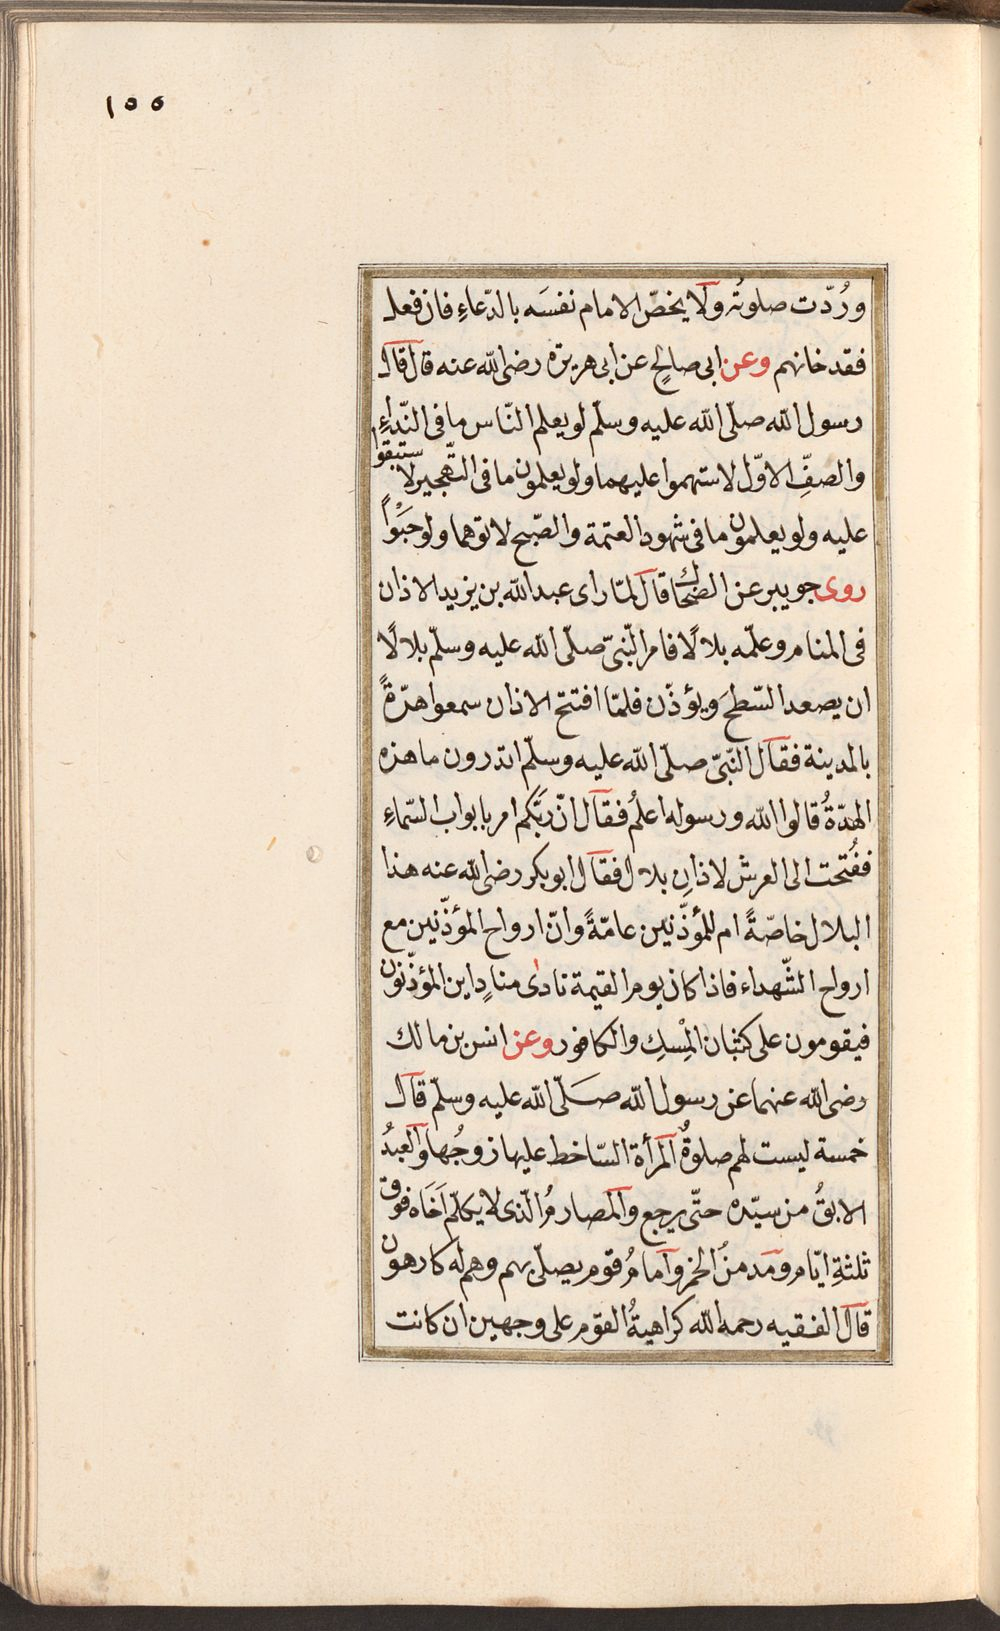 ١٥٥
ورُدّت صلوته ولا يخصّ الامام نفسَه بالدّعاءِ فان فعل
فقد خانهم وعن ابى صالحٍ عن ابى هريرة رضى الله عنه قال قال
رسول الله صلّى الله عليه وسلّم لو يعلم النّاس ما فى النّداءِ
والصفّ الاوّل لاستهموا عليهما ولو يعلمون ما فى التّهجير لاستبقوا
عليه ولو يعلمون ما فى شهود العتمة والصّبح لاتوهما ولو حَبْواً
روى جويبر عن الضحّاك قال لمّا راى عبد الله بن يزيد الاذان
فى المنام وعلّمه بلالًا فامر النّبىّ صلّى الله عليه وسلّم بلالًا
ان يصعد السّطحَ ويؤذّن فلمّا افتتح الاذان سمعوا هدّةً
بالمدينة فقال النّبىّ صلّى الله عليه وسلّم اتدرون ما هذه
الهدّةُ قالوا الله ورسوله اعلمُ فقال انّ ربّكم امر بابواب السّماءِ
ففُتحت الى العرش لاذانِ بلال فقال ابو بكر رضى الله عنه هذا
البلال خاصّةً ام للمؤذّنين عامّةً وانّ ارواح المؤذّنين مع
ارواح الشّهداء فاذا كان يوم القيمة نادى منادٍ اين المؤذّنون
فيقومون على كثبان المِسكِ والكافور وعن انس بن مالك
رضى الله عنهما عن رسول الله صلّى الله عليه وسلّم قال
خمسة ليست لهم صلوةٌ المرأة السّاخط عليها زوجُها والعبدُ
الابقُ من سيّده حتّى يرجع والمصارمُ الّذى لا يكلّم اَخَاه فوق
ثلثةِ ايّام ومدمنُ الخمر وامامُ قوم يصلّى بهم وهم له كارهون
قال الفقيه رحمه الله كراهيةُ القوم على وجهين ان كانت